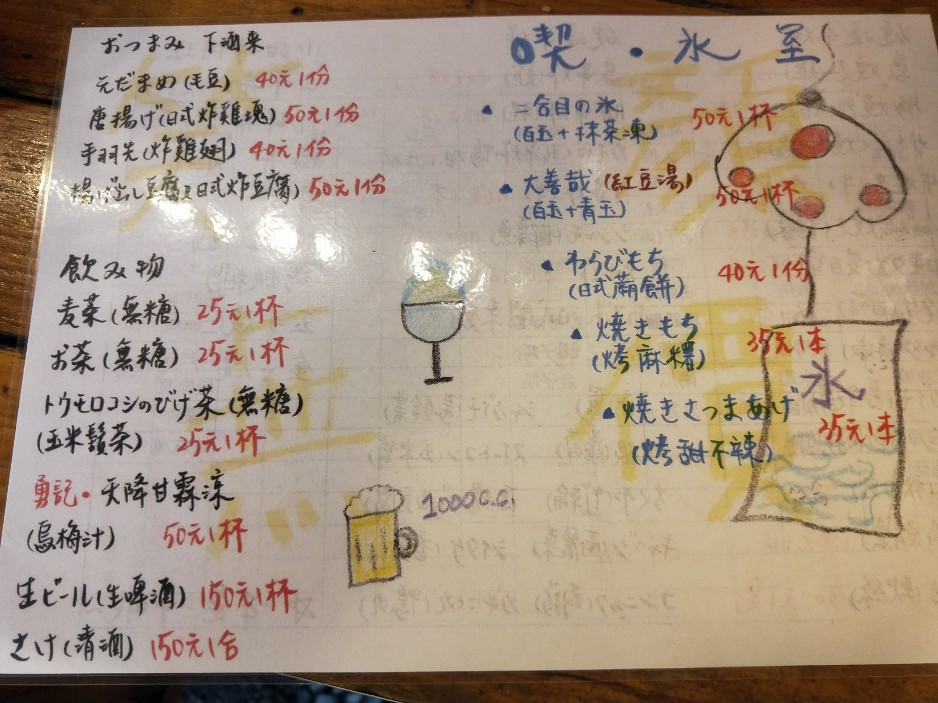 おつまみ 下酒菜
えだまめ(毛豆) 40元1份
唐揚げ(日式炸雞塊) 50元1份
手羽先(炸雞翅) 40元1份
揚げ出し豆腐(日式炸豆腐) 50元1份
飲み物
麦茶(無糖) 25元1杯
お茶(無糖) 25元1杯
トウモロコシのひげ茶(無糖)
(玉米鬚茶) 25元1杯
勇記・天降甘霖涼
(烏梅汁) 50元1杯
生ビール(生啤酒) 150元1杯
さけ(清酒) 150元1合
1000c.c.
喫・氷室
二合目の氷 50元1杯
(白玉+抹茶凍)
大善哉(紅豆湯) 50元1杯
(白玉+青玉)
わらびもち 40元1份
(日式蕨餅)
焼きもち 35元1本
(烤麻糬)
焼きさつまあげ 35元1本
(烤甜不辣)
氷